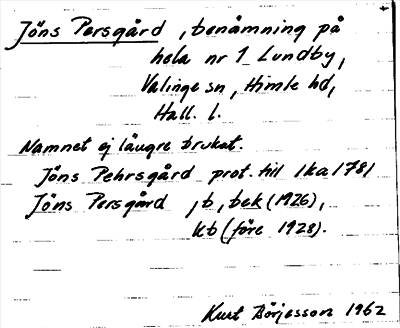 Jöns Persgård, benämning på
hela nr 1 Lundby,
Valinge sn, Himle hd,
Hall. l.
Namnet ej längre brukat.
Jöns Pehrsgård prot. till lka 1781
Jöns Persgård, b, bek (1926),
kb (före 1928).
Kurt Börjesson 1962